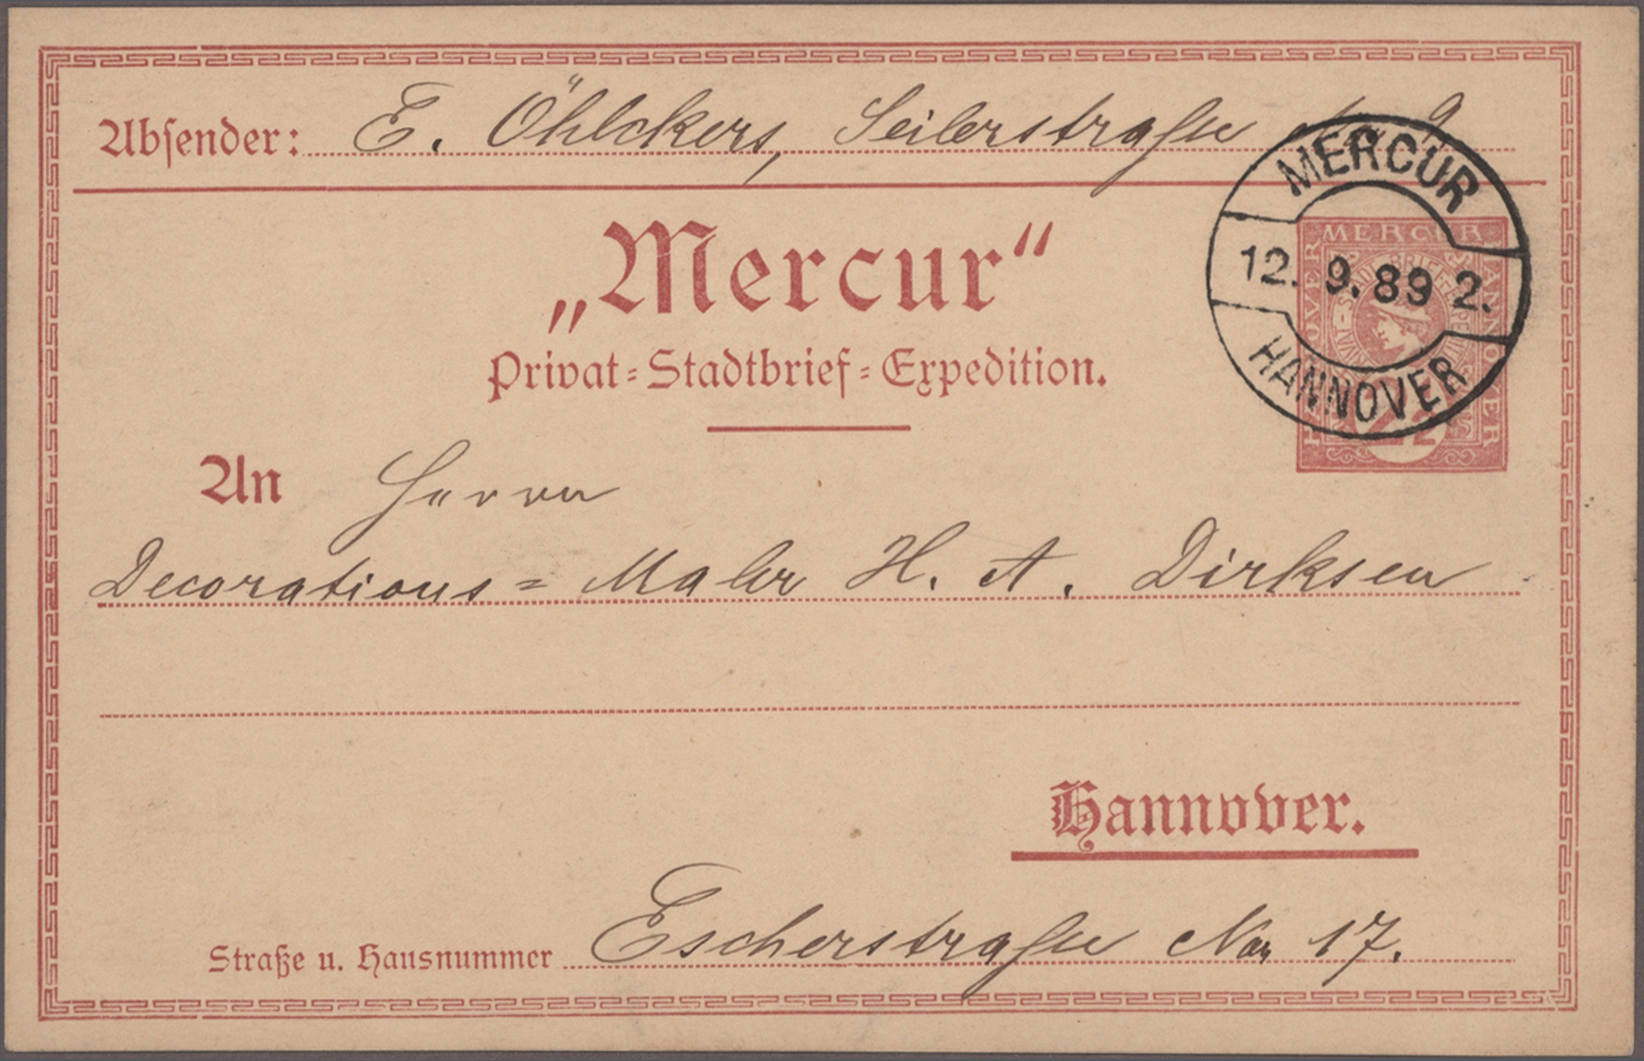 Absender: E. Öhlckers, Seilerstraße No 9
MERCUR
12. 9. 89 2.
HANNOVER
„Mercur“
Privat-Stadtbrief-Expedition.
MERCUR
HANNOVER
HANNOVER
2½
An Herrn
Decorations=Maler H. A. Dirksen
Hannover.
Straße u. Hausnummer Escherstraße No 17.